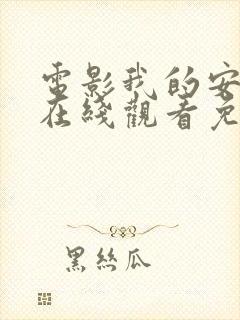 電影我的安
在綫觀看免
黑絲瓜